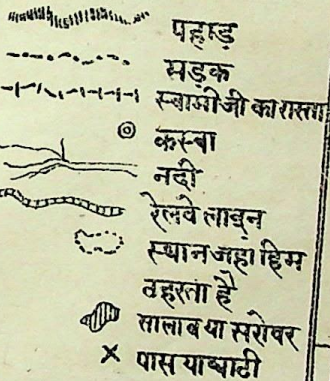 पहाड़
सड़क
स्वामीजी का रास्ता
कस्बा
नदी
रेलवे लाइन
स्थान जहा हिम
ठहरता है
तालाब या सरोवर
पास या घाटी